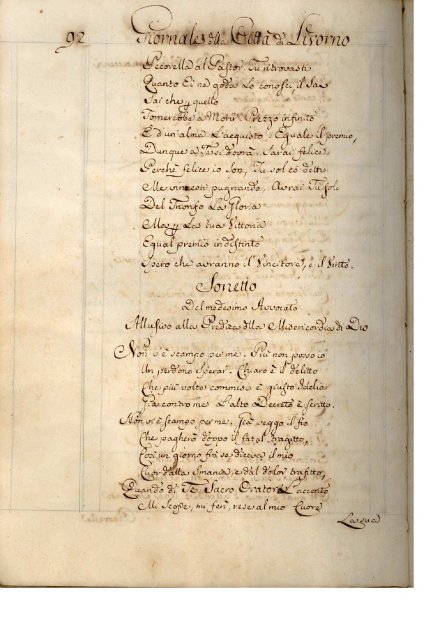 92 Giornale della Città di Livorno
Pecorella al Pastor Tu ritrovasti
Quanto Ei ne goda Lo conosci, il Sai
Sai che p quello
Prezzo infinito
E d'un'alma L'acquisto: Eguale il premio,
Dunque a Te si dovrà. Sarai felice
Perchè felice io son, Tu sol co' detti
Me vincesti pugnando. Avrai Tu sol
Del Trionfo La Gloria
Ma p La tua Vittoria
Egual premio indistinto
Spero che avranno il Vincitore, e il Vinto.
Sonetto
Del medesimo Avvocato
Allusivo alla Predica della Misericordia di Dio
Non v'è scampo per me. Più non poss'io
Un perdono Sperar. Chiaro è il delitto
Che più volte commisi è giusto Iddio
Già contro me L'alto Decreto è scritto.
Non v'è scampo per me: Già veggo il fio
Che pagherò doppo il fatal tragitto,
Così un giorno fra se diceva il mio
Cuor dalla Smania, e dal dolor trafitto,
Quando di Te Sacro Orator L'accento
Mi Scosse, mi ferì, rese al mio Cuore
La sua